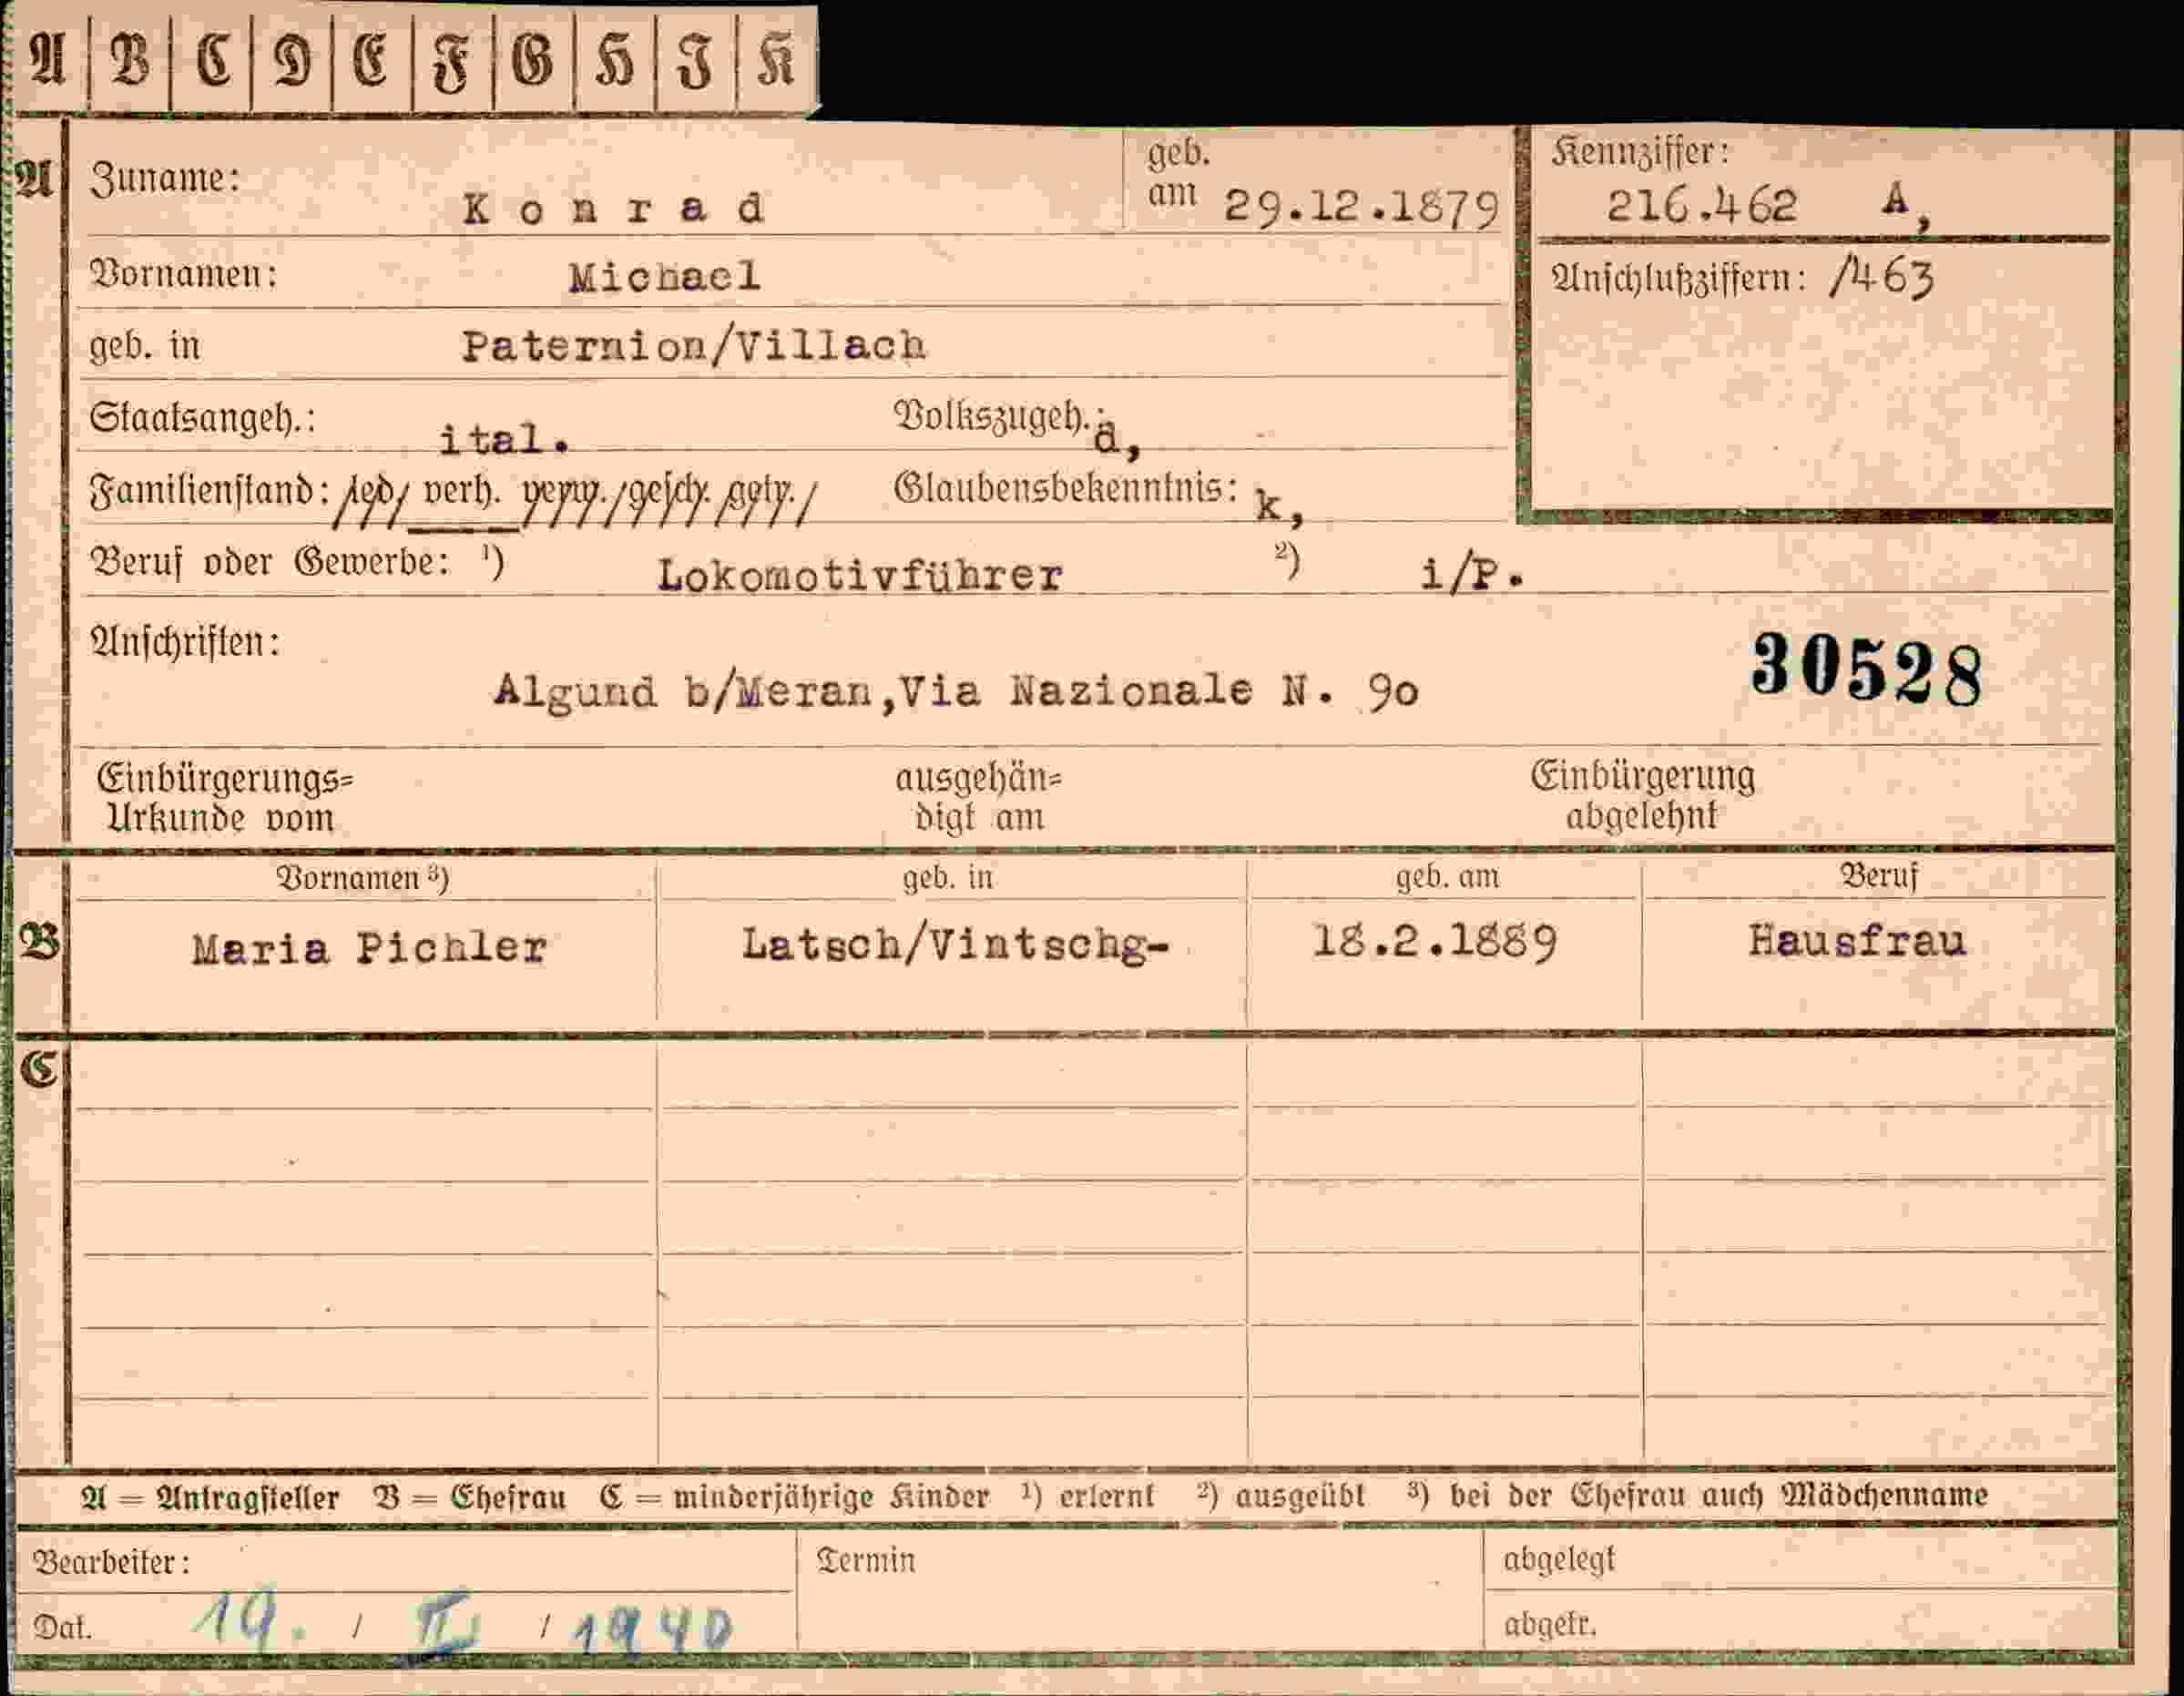 A B C D E F G H I K
A Zuname: Konrad geb. am 29.12.1879 Kennziffer: 216.462 A,
Vornamen: Michael Anschlußziffern: /463
geb. in Paternion/Villach
Staatsangeh.: ital. Volkszugeh.: d,
Familienstand: led. verh. verw. gesch. getr. Glaubensbekenntnis: k,
Beruf oder Gewerbe: ¹) Lokomotivführer ²) i/P.
Anschriften:
30528
Algund b/Meran,Via Nazionale N. 9o
Einbürgerungs= ausgehän= Einbürgerung
Urkunde vom digt am abgelehnt
Vornamen ³) geb. in geb. am Beruf
B Maria Pichler Latsch/Vintschg- 18.2.1889 Hausfrau
C
A = Antragsteller B = Ehefrau C = minderjährige Kinder ¹) erlernt ²) ausgeübt ³) bei der Ehefrau auch Mädchenname
Bearbeiter: Termin abgelegt
Dat. 19. / II / 1940 abgetr.